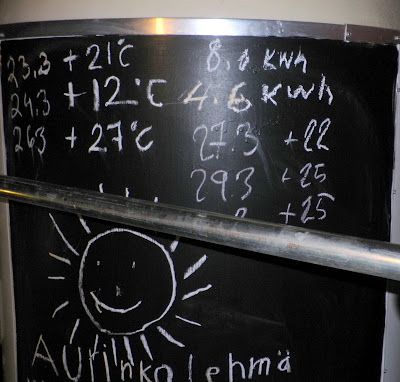 23.3 +21°C KWh
24.3 +12°C 4.6 KWh
263 +27°C 27.3 +22
29.3 +25
+25
AUrinkolehmä